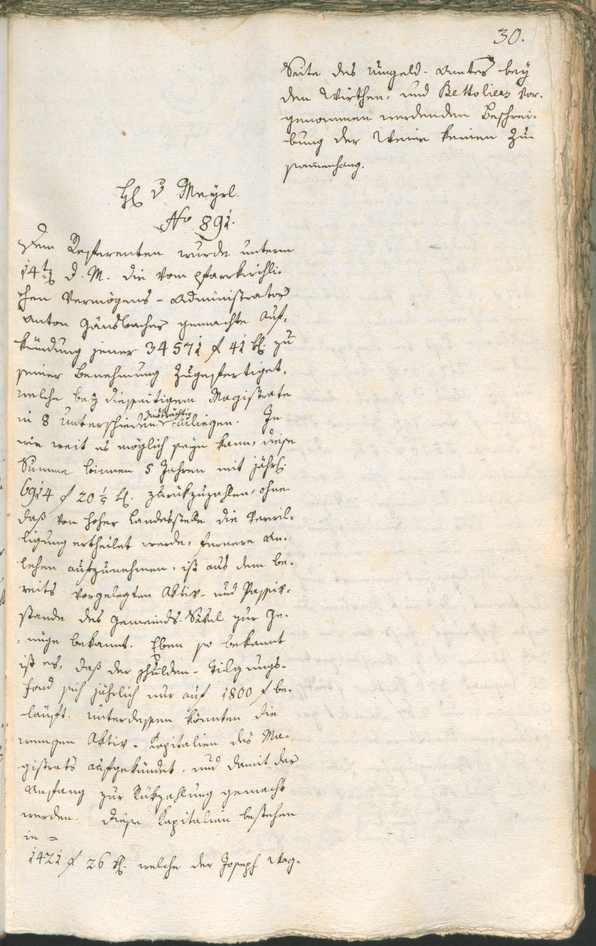 30.
Seite des Umgeld-Amtes bey
den Wirthen, und Bettoliers vor-
genommen werdenden Beschrei-
bung der Weine keinen Zu-
sammenhang.
H v Mayrl.
No 891.
Dem Referenten wurde unterm
14t d. M. die vom pfarrkirchli-
chen Vermögens-Administrator
Anton Gänsbacher gemachte Auf-
kündung jener 34571 f 41 x zu
seiner Benehmung zugefertiget,
welche bey diesseitigem Magistrate
in 8 unterschieden aufliegen. In
wie weit es möglich seyn kann, diese
Summe binnen 5 Jahren mit jährl
6914 f 20 1/5 x. zurückzuzahlen, ohne
daß von hoher Landesstelle die Bewil-
ligung ertheilet werde, fernere An-
lehen aufzunehmen, ist aus dem be-
reits vorgelegten Aktiv- und Passiv-
stande des Gemeinds-Säkel zur Ge-
nüge bekannt. Eben so bekannt
ist es, daß der Schulden-Tilgungs-
fond sich jährlich nur auf 1800 f be-
läuft. Unterdessen könnten die
wenigen Aktiv-Kapitalien des Ma-
gistrats aufgekündet, und damit der
Anfang zur Rükzahlung gemacht
werden. Diese Kapitalien bestehen
in =
1421 f 26 x. welche der Joseph Mag-